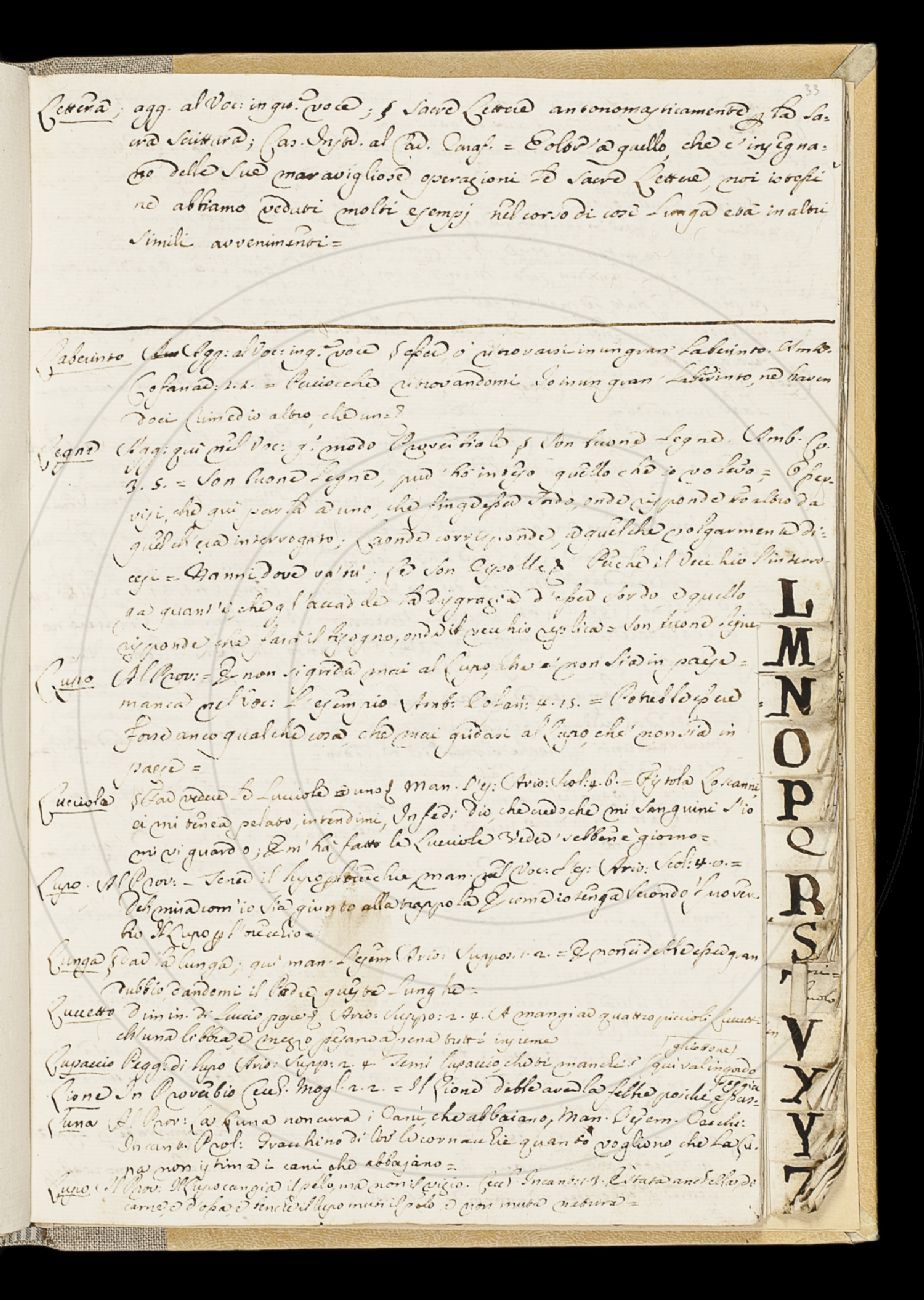 33
Lettera; agg. al Voc: in qu.ª voce; § Sacre Lettere antonomasticamente la Sa-
cra Scrittura; Cas. al Card. = E oltre a quello, che c'insegna-
no delle Sue maravigliose operazioni le Sacre Lettere, noi istessi
ne abbiamo veduti molti esempj nel corso di così lunga età in altri
simili avvenimenti =
Laberinto Agg: al Voc: in q.ª voce § esser o ritrovarsi in un gran Laberinto. Amb.
Cofanar: = ritrovandomi Io in un gran Laberinto, ne haven
doci rimedio altro, che
Legne Agg: qui nel Voc: q.º modo Proverbiale § Son buone legne. Amb. Co.
3. 5. = Son buone legne, può ha inteso quello che io volevo =
che qui parla a uno, che finge esser sordo, onde risponde altro da
quel ch'era interrogato; Laonde corrisponde, a quel che volgarmente di-
cesi = Nanni, dove vai; Perche il Vecchio l'interro-
ga quant'è, che gl'accadde la disgrazia d'esser sordo e quello
risponde farà il bisogno, onde il vecchio replica = Son buone legne
Lupo Al Prov: = E non si grida mai al Lupo, che e' non sia in paese =
manca nel Voc: l'esempio Amb: Cofan: 4. 15. = Potrebbe essere
forse anco qualche cosa, che mai gridasi al Lupo, che non sia in
paese =
Lucciola § Far vedere le lucciole a uno Man. l'es: Ario: Scol: 4. 6. =
ei mi tenea pelato, intendimi, In fe di Dio, che credo che mi Sanguini S'io
mi vi guardo; E m'ha fatto le Lucciole Veder sebben è giorno =
Lupo. Al Prov: - Tener il lupo orecchie man. nel Voc: l'es: Ario: Scol: 4.
Deh mira com'io sia giunto alla trappola E come io tenga secondo prover
bio Il Lupo l'orecchio =
Lunga § Dar la lunga; qui man. l'esem Ario: Suppos: 2. = E non vi debbe esser gran
Dubbio, dandomi il Padre queste lunghe =
Luccetto Dimin: di Luccio pesce Ario: Suppo: 2. 4. A mangiar quattro piccioli luccetti
ch'una libbra, e mezzo pesano a pena tutti insieme
Lupaccio Pegg: di lupo Ario: Supp: 2. 4. Temi lupaccio che ti manchi? qui val ingordo
ghiottone
Lione In Proverbio Cecch: Mogl: 2. 2. = Il Lione debbe aver la febbre poiche
Luna Al Prov: La Luna non cura i Cani, che abbaiano, Man. l'esem. Cecchi:
Incant: Prol: Gracchino di lor le cornacchie quanto vogliono, che la Lu-
na non istima i cani che abbajano =
Lupo. Al Prov. Il Lupo cangia il pelo, ma non il vizio. Cec: Incant:
carne, e d'ossa, e benche il lupo muti il pelo e non muta natura =
L
M
N
O
P
Q
R
S
T
V
X
Y
Z